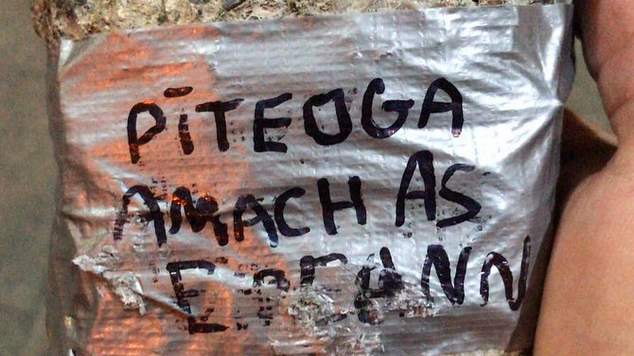 PITEOGA
AMACH AS
EIREANN